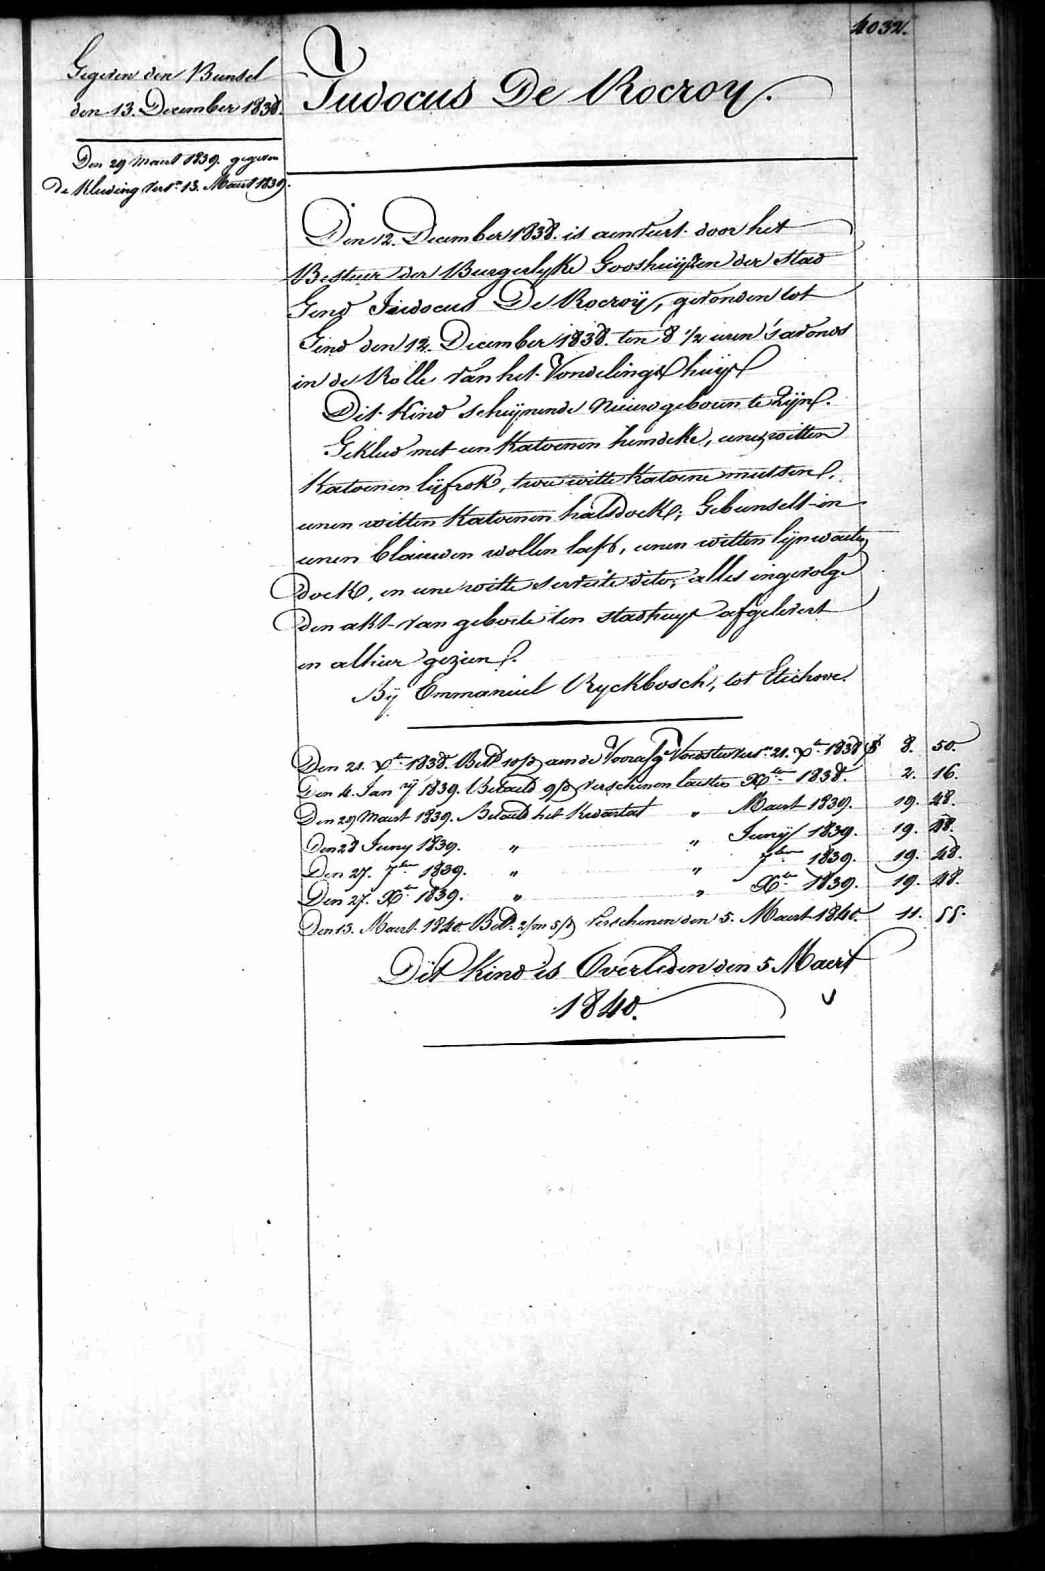 4032.
Gegeven den Bunsel
den 13. December 1838.
Den 29 Maert 1839. gegeven
de Kleeding vers.n 13. Maert 1839.
Judocus De Rocroy.
Den 12. December 1838. is aenveirt door het
Bestuer der Burgerlyke Godshuijzen der stad
Gend Judocus De Rocroÿ, gevonden tot
Gend den 12. December 1838. ten 8 1/2 uren 's avonds
in de Rolle van het Vondelings huijs
Dit kind schijnende nieuwgeboren te Zijn.
Gekleed met een Katoenen hemdeke, eenen witten
Katoenen lijfrok, twee witte Katoene mutsen,
eenen witten Katoenen halsdoek, Gebunselt in
eenen blauwen wollen lap, eenen witten lijnwaeten
doek, en eene witte serviete dito, alles ingevolge
den akt van geboorte ten stadhuijs afgelevert
en alhier gezien.
Bÿ Emmanuel Ryckbosch, tot Etichove.
Den 21. Xb 1838. Betd 10/d aen de Voorafge Voedster vers.n 21. Xb 1838 f 8. 50.
Den 4. Janÿ 1839. Betaeld 9/d verschenen laesten Xb 1838. 2. 16.
Den 29 Maert 1839. Betaeld het Kwartael " Maert 1839. 19. 48.
Den 28 Juny 1839. " " Junÿ 1839. 19. 48.
Den 27. 7ber 1839. " " 7ber 1839. 19. 48.
Den 27. Xb 1839. " " Xb 1839. 19. 48.
Den 13. Maert 1840 Betd 2/m 5/d Verschenen den 5. Maert 1840. 11. 55.
Dit Kind is Overleden den 5 Maert
1840.